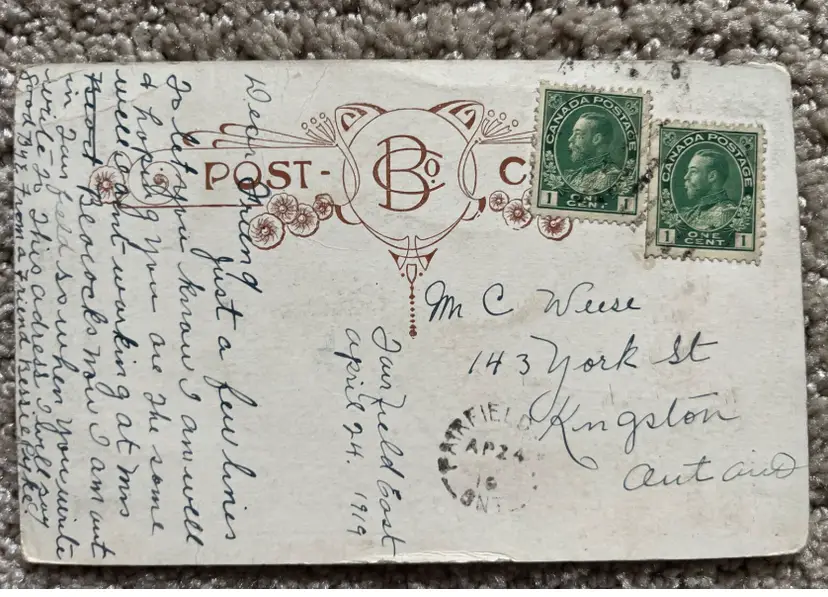 POST-
B Co.
CANADA POSTAGE
1
1
CANADA POSTAGE
1 ONE CENT 1
Mr C Weese
143 York St
Kngston
Ontario
FAIRFIELD
AP 24
ONT
Fairfield East
april 24. 1919
Dear Friend
Just a few lines
To let you know I am well
& hoping you are the some
well I aint working at Mrs
now I am out
in Fair field so when you write
write to This adress I will say
good Bye From a Friend Bessie